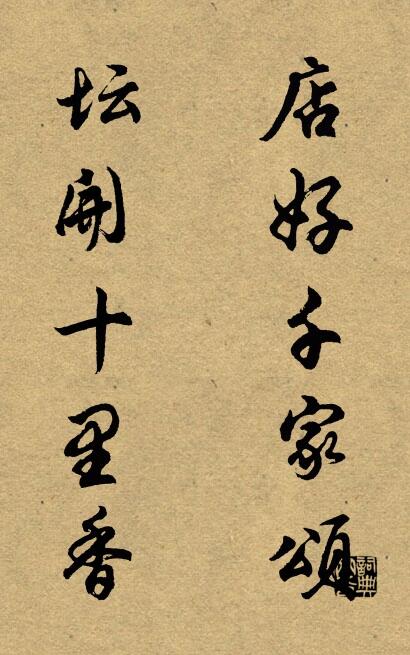 店好千家頌
坛開十里香